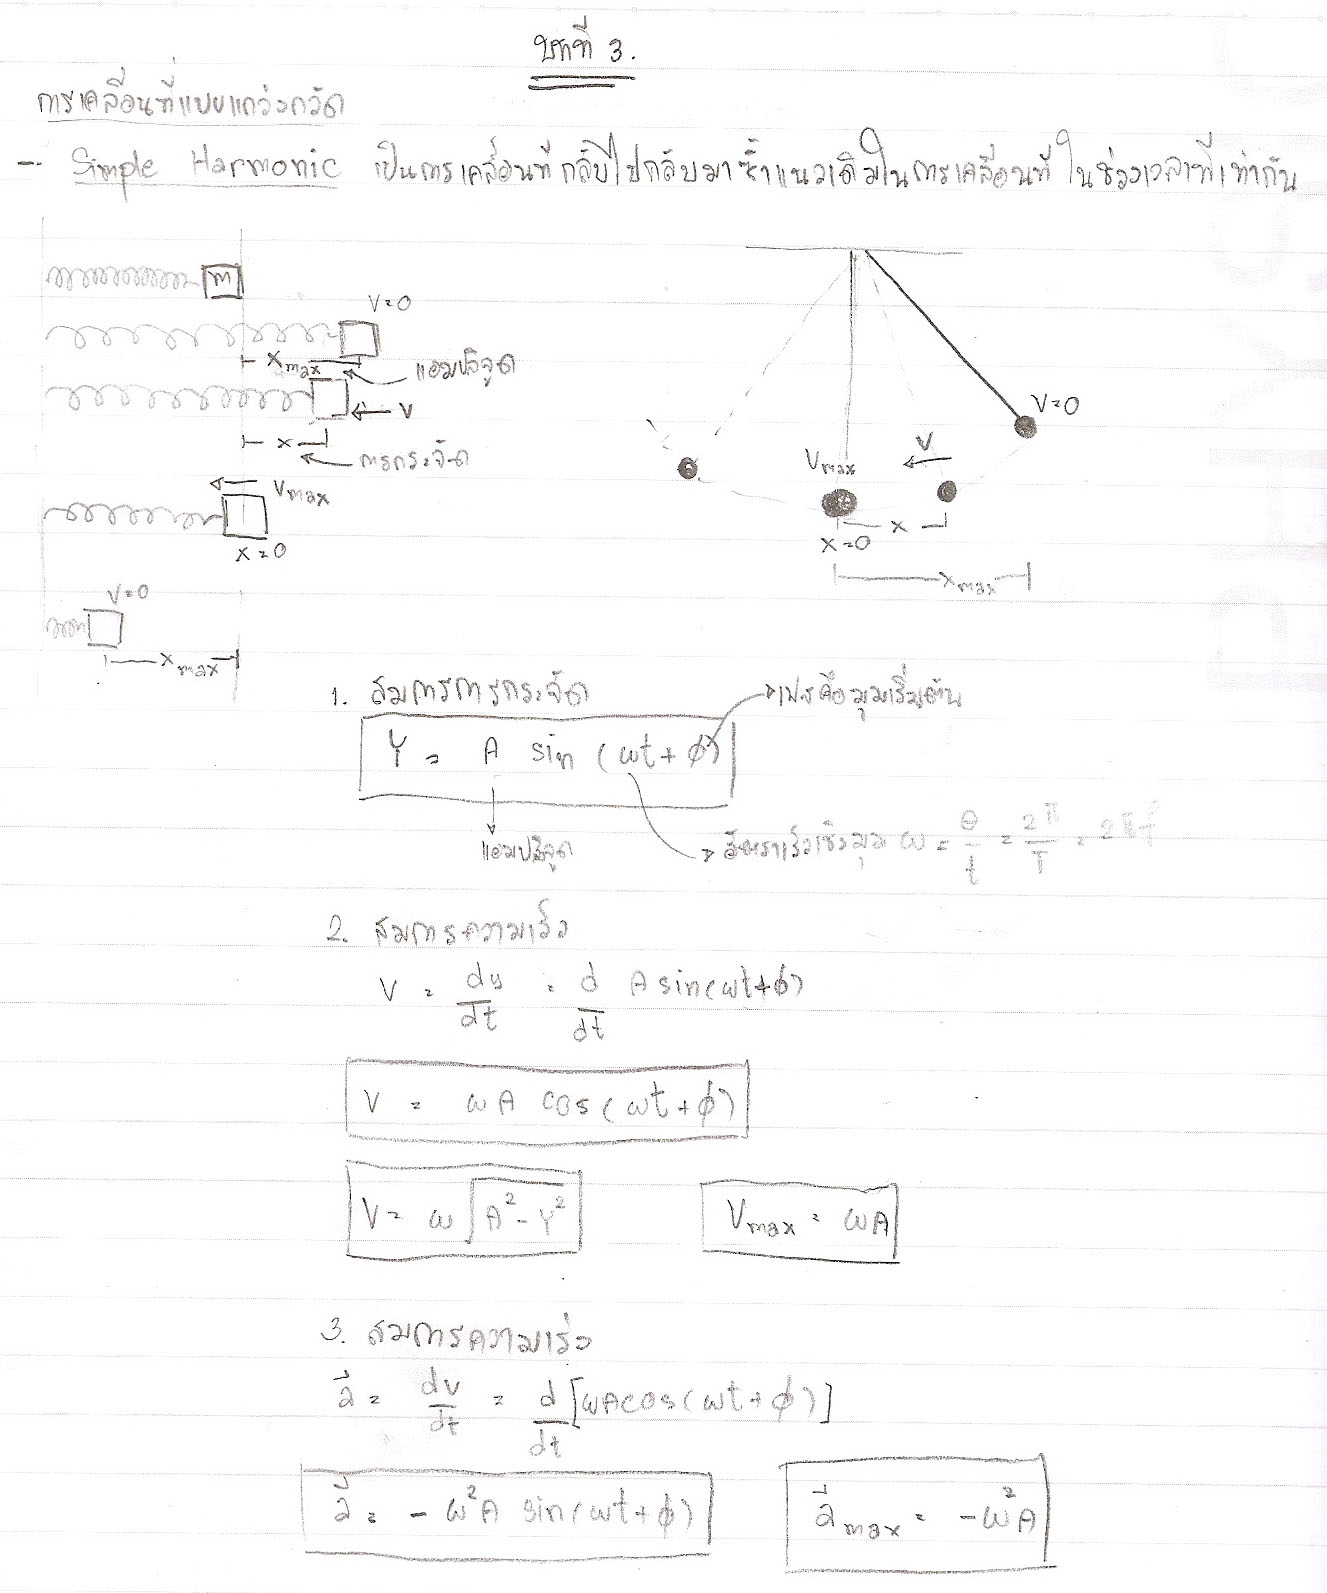 บทที่ 3.
การเคลื่อนที่แบบแกว่งกวัด
- Simple Harmonic เป็นการเคลื่อนที่กลับไปกลับมาซ้ำแนวเดิมในการเคลื่อนที่ ในช่วงเวลาที่เท่ากัน
m
V=0
x max
แอมปลิจูด
V
x
การกระจัด
V max
x=0
V=0
x max
V=0
V
V max
x
x=0
x max
1. สมการการกระจัด
เฟสคือมุมเริ่มต้น
Y = A sin (ωt + φ)
แอมปลิจูด
อัตราเร็วเชิงมุม ω = θ/t = 2π/T = 2πf
2. สมการความเร็ว
V = dy/dt = d/dt A sin(ωt+φ)
V = ωA cos(ωt+φ)
V = ω√(A² - Y²)
V max = ωA
3. สมการความเร่ง
a⃗ = dv/dt = d/dt [ωA cos(ωt+φ)]
a⃗ = -ω²A sin(ωt+φ)
a⃗ max = -ω²A